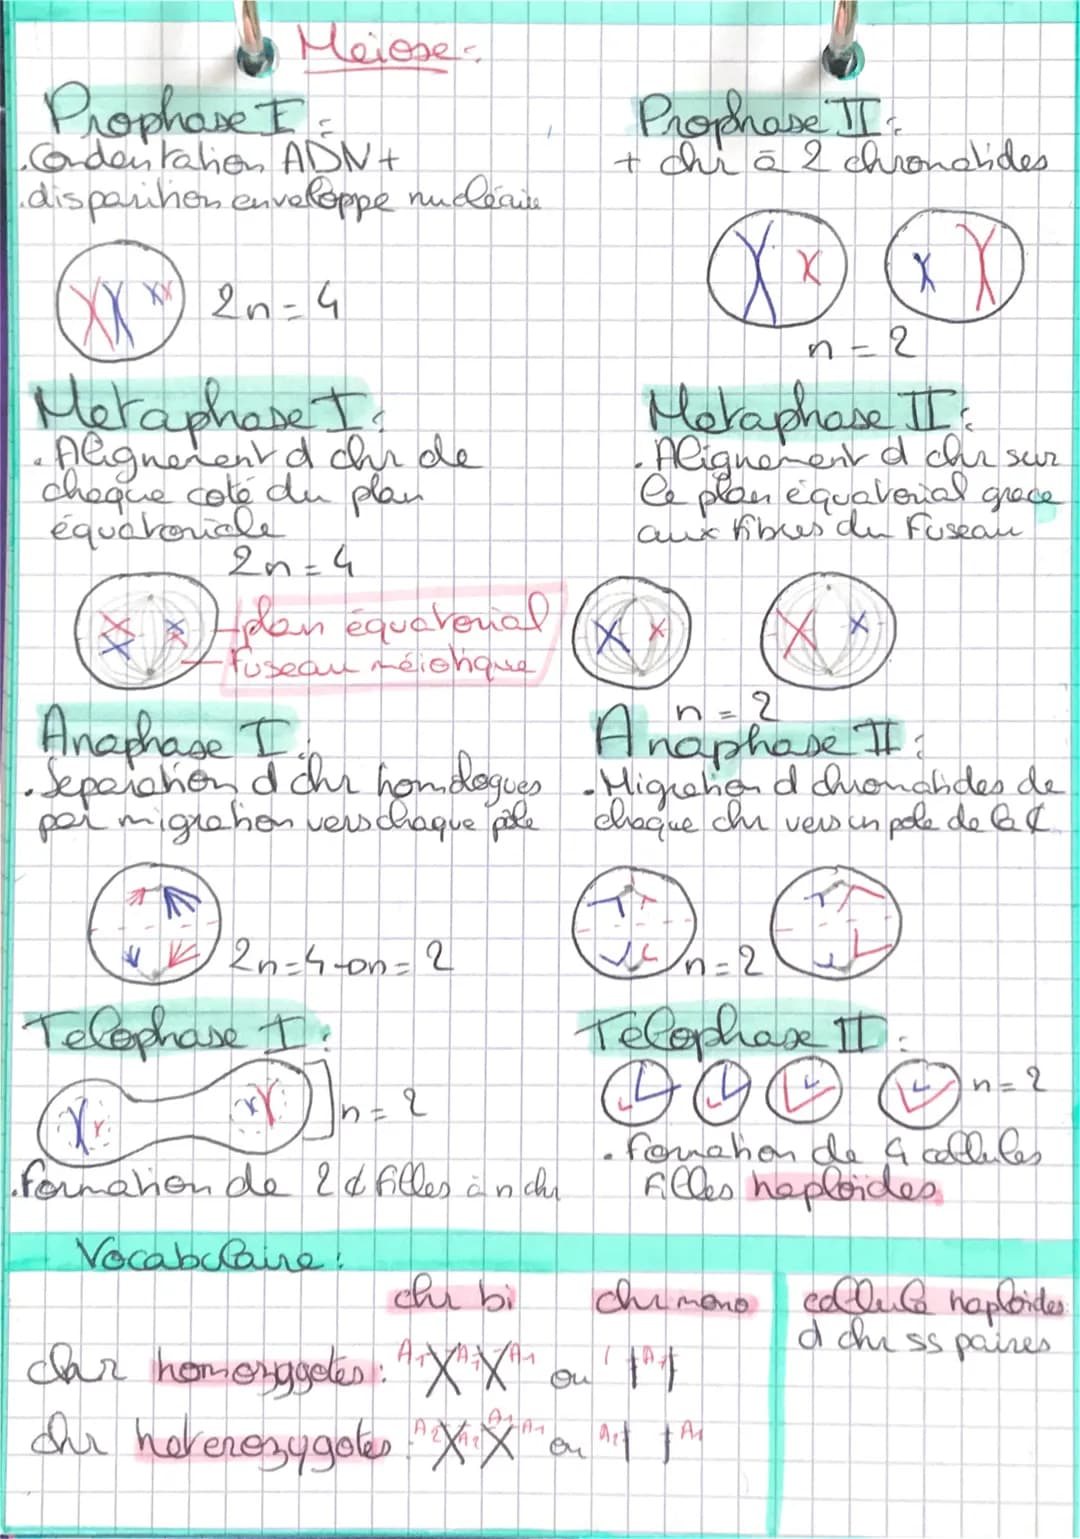 Meiose:
Prophase I:
.Condentation ADN+
.disparition enveloppe nucléaire
2n=4
Metaphase I:
.Alignement d chr de
chaque coté du plan
équatoriale
2n=4
plan équatorial
fuseau méiotique
Anaphase I:
.Separation d chr homologues
par migration vers chaque pôle
2n=4→n=2
Telophase I:
n=2
.formation de 2 ¢ filles à n chr
Prophase II:
+ chr à 2 chromatides
n=2
Metaphase II:
.Alignement d chr sur
le plan équatorial grace
aux fibres du fuseau
n=2
Anaphase II:
.Migration d chromatides de
chaque chr vers un pole de la ¢
n=2
Télophase II:
n=2
.formation de 4 cellules
filles haploïdes
Vocabulaire:
chr bi chr mono
chr homozygotes: A1 A1 A1 ou A1
chr heterozygotes: A2 A2 A1 A1 ou A2 A1
cellule haploides:
d chr ss paires